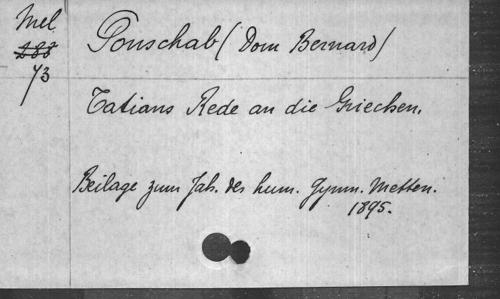 Mel
288
73
Ponschab (Dom Bernard)
Tatians Rede an die Griechen.
Beilage zum Jah. des hum. Gymn. Metten.
1895.